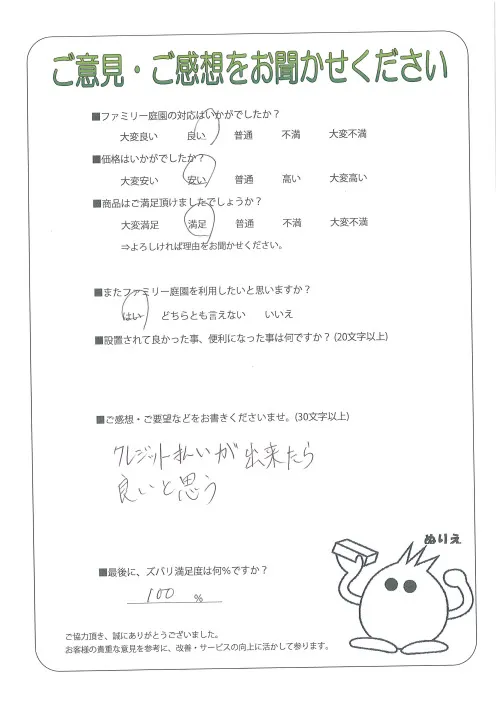 ご意見・ご感想をお聞かせください
■ファミリー庭園の対応はいかがでしたか？
大変良い 良い 普通 不満 大変不満
■価格はいかがでしたか？
大変安い 安い 普通 高い 大変高い
■商品はご満足頂けましたでしょうか？
大変満足 満足 普通 不満 大変不満
⇒よろしければ理由をお聞かせください。
■またファミリー庭園を利用したいと思いますか？
はい どちらとも言えない いいえ
■設置されて良かった事、便利になった事は何ですか？(20文字以上)
■ご感想・ご要望などをお書きくださいませ。(30文字以上)
クレジット払いが出来たら
良いと思う
ぬりえ
■最後に、ズバリ満足度は何％ですか？
100 %
ご協力頂き、誠にありがとうございました。
お客様の貴重な意見を参考に、改善・サービスの向上に活かして参ります。